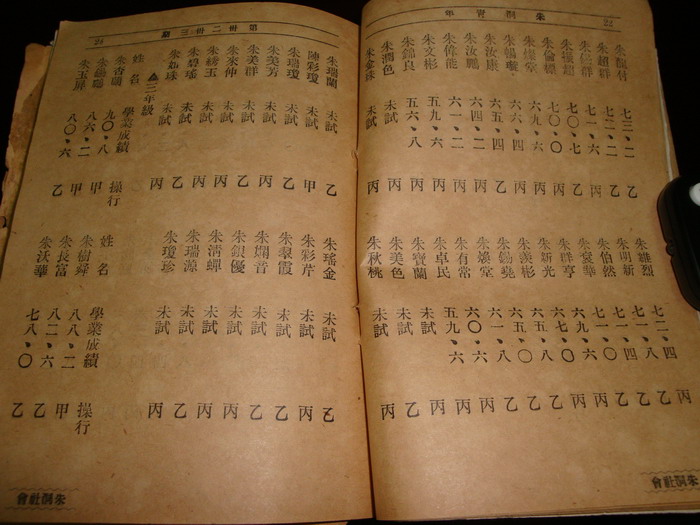 年賓洞朱
22
七三、二 乙
朱超群 七二、二 丙
七一、六 丙
七〇、七 乙
七〇、〇 丙
六九、六 丙
六五、四 丙
朱汝康 六五、四 丙
朱汝鵬 六四、二 丙
朱偉能 六一、二 丙
朱文彬 五九、六 丙
朱錦良 五六、八 丙
朱潤色 未試 丙
朱金珠 未試 丙
朱維烈 七二、四 丙
朱明新 七一、八 乙
朱伯然 七一、四 乙
朱袞華 七一、〇 乙
朱群亨 六九、六 丙
朱新光 六七、〇 丙
朱羨彬 六五、八 乙
朱錫堯 六五、〇 乙
朱燦堂 六一、八 乙
朱有常 六〇、六 丙
朱卓民 五九、六 丙
朱寶蘭 未試 丙
朱美色 未試 乙
朱秋桃 未試 丙
朱洞社會
第卅二卅三期
23
朱瑞蘭 未試 乙
陳彩瓊 未試 甲
朱瑞瓊 未試 丙
朱美芳 未試 丙
朱美群 未試 乙
朱來仲 未試 丙
朱綉玉 未試 丙
朱碧瑤 未試 乙
朱如珠 未試 丙
朱瑤金 未試 乙
朱彩芹 未試 丙
朱翠霞 未試 乙
朱嫻音 未試 乙
朱銀優 未試 乙
朱清蟬 未試 丙
朱瑞源 未試 丙
朱瓊珍 未試 丙
三年級
姓名 學業成績 操行
朱杏頤 九〇、〇 甲
八六、二 甲
朱玉屏 八〇、六 乙
姓名 學業成績 操行
朱樹舜 八八、二 甲
朱長富 八二、六 乙
朱沃華 七八、〇 乙
朱洞社會